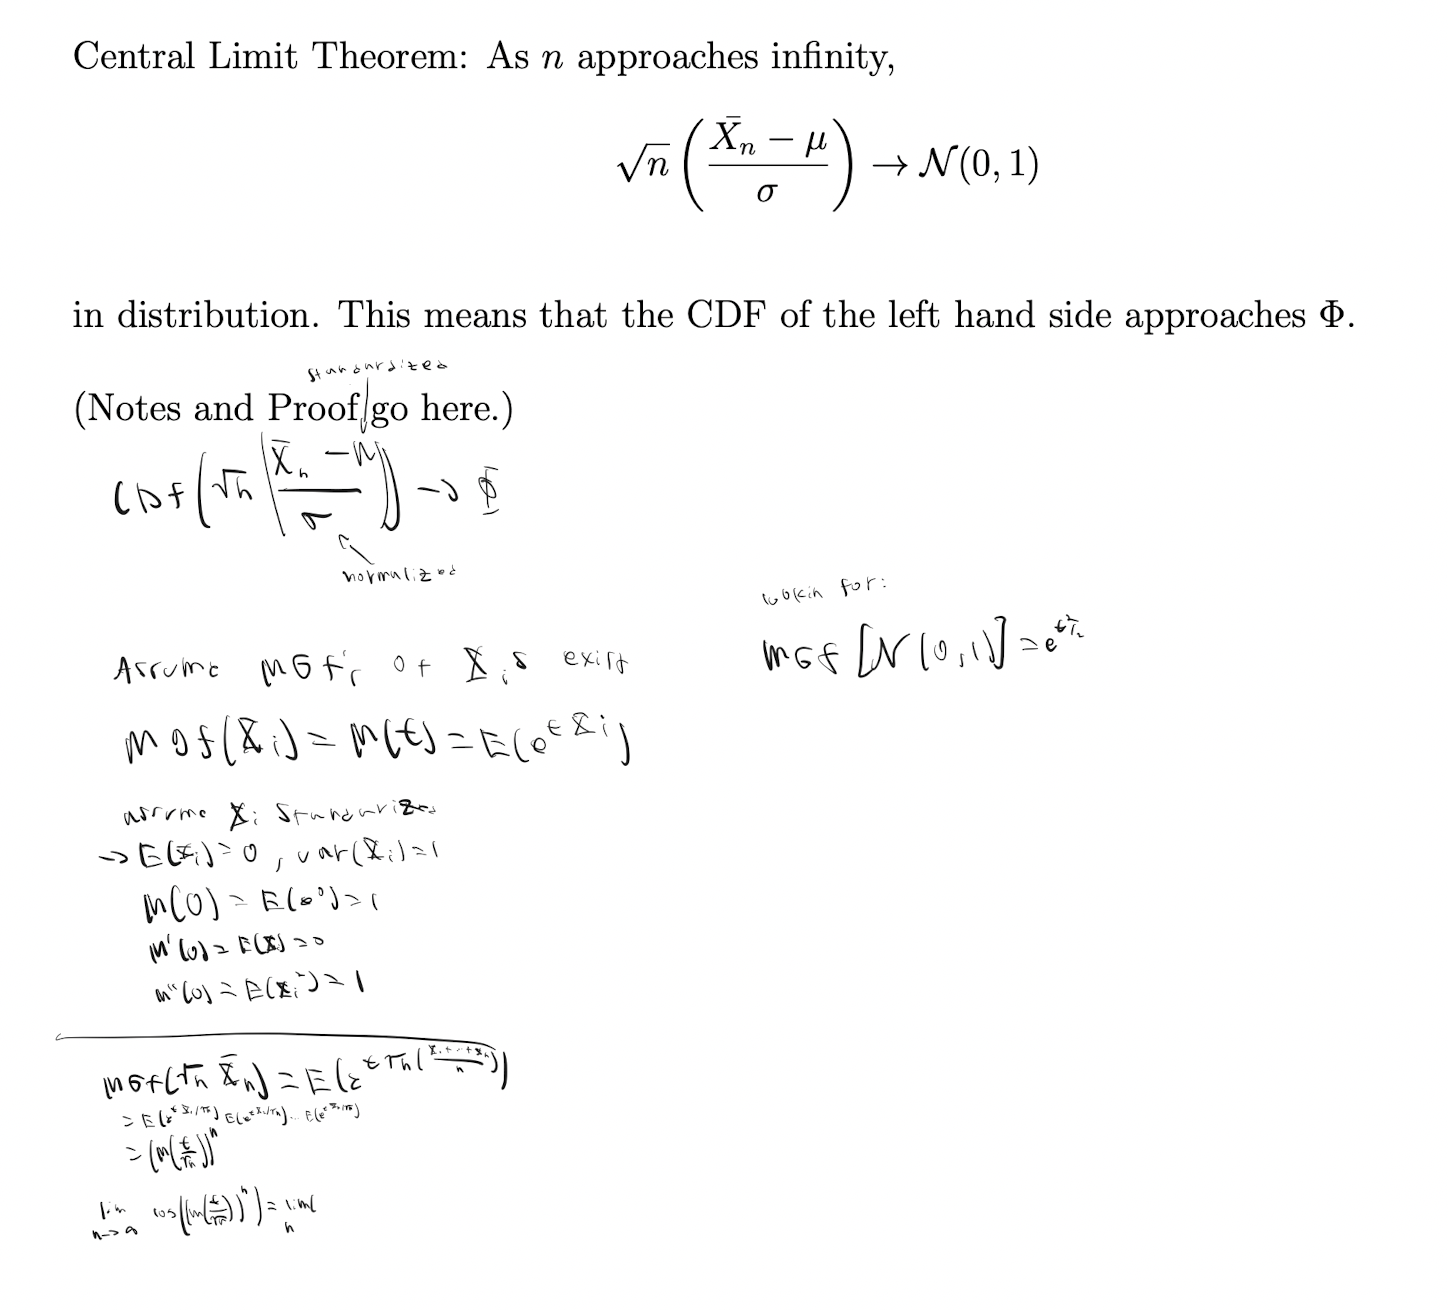 Central Limit Theorem: As n approaches infinity,
√n ( (X̄ₙ − μ) / σ ) → 𝒩(0, 1)
in distribution. This means that the CDF of the left hand side approaches Φ.
standardized
(Notes and Proof go here.)
CDF(√n ((X̄ₙ − μ) / σ)) → Φ
normalized
lookin for:
MGF [N(0,1)] = e^(t²/2)
Assume MGF's of Xᵢs exist
MGf(Xᵢ) = M(t) = E(e^(tXᵢ))
assume Xᵢ standardized
→ E(Xᵢ) = 0, var(Xᵢ) = 1
M(0) = E(e⁰) = 1
M'(0) = E(X) = 0
M''(0) = E(Xᵢ²) = 1
MGf(√n X̄ₙ) = E(e^(t√n((X₁+...+Xₙ)/n)))
= E(e^(tX₁/√n)) E(e^(tX₂/√n)) ... E(e^(tXₙ/√n))
= (M(t/√n))ⁿ
lim n→∞ log((M(t/√n))ⁿ) = lim n